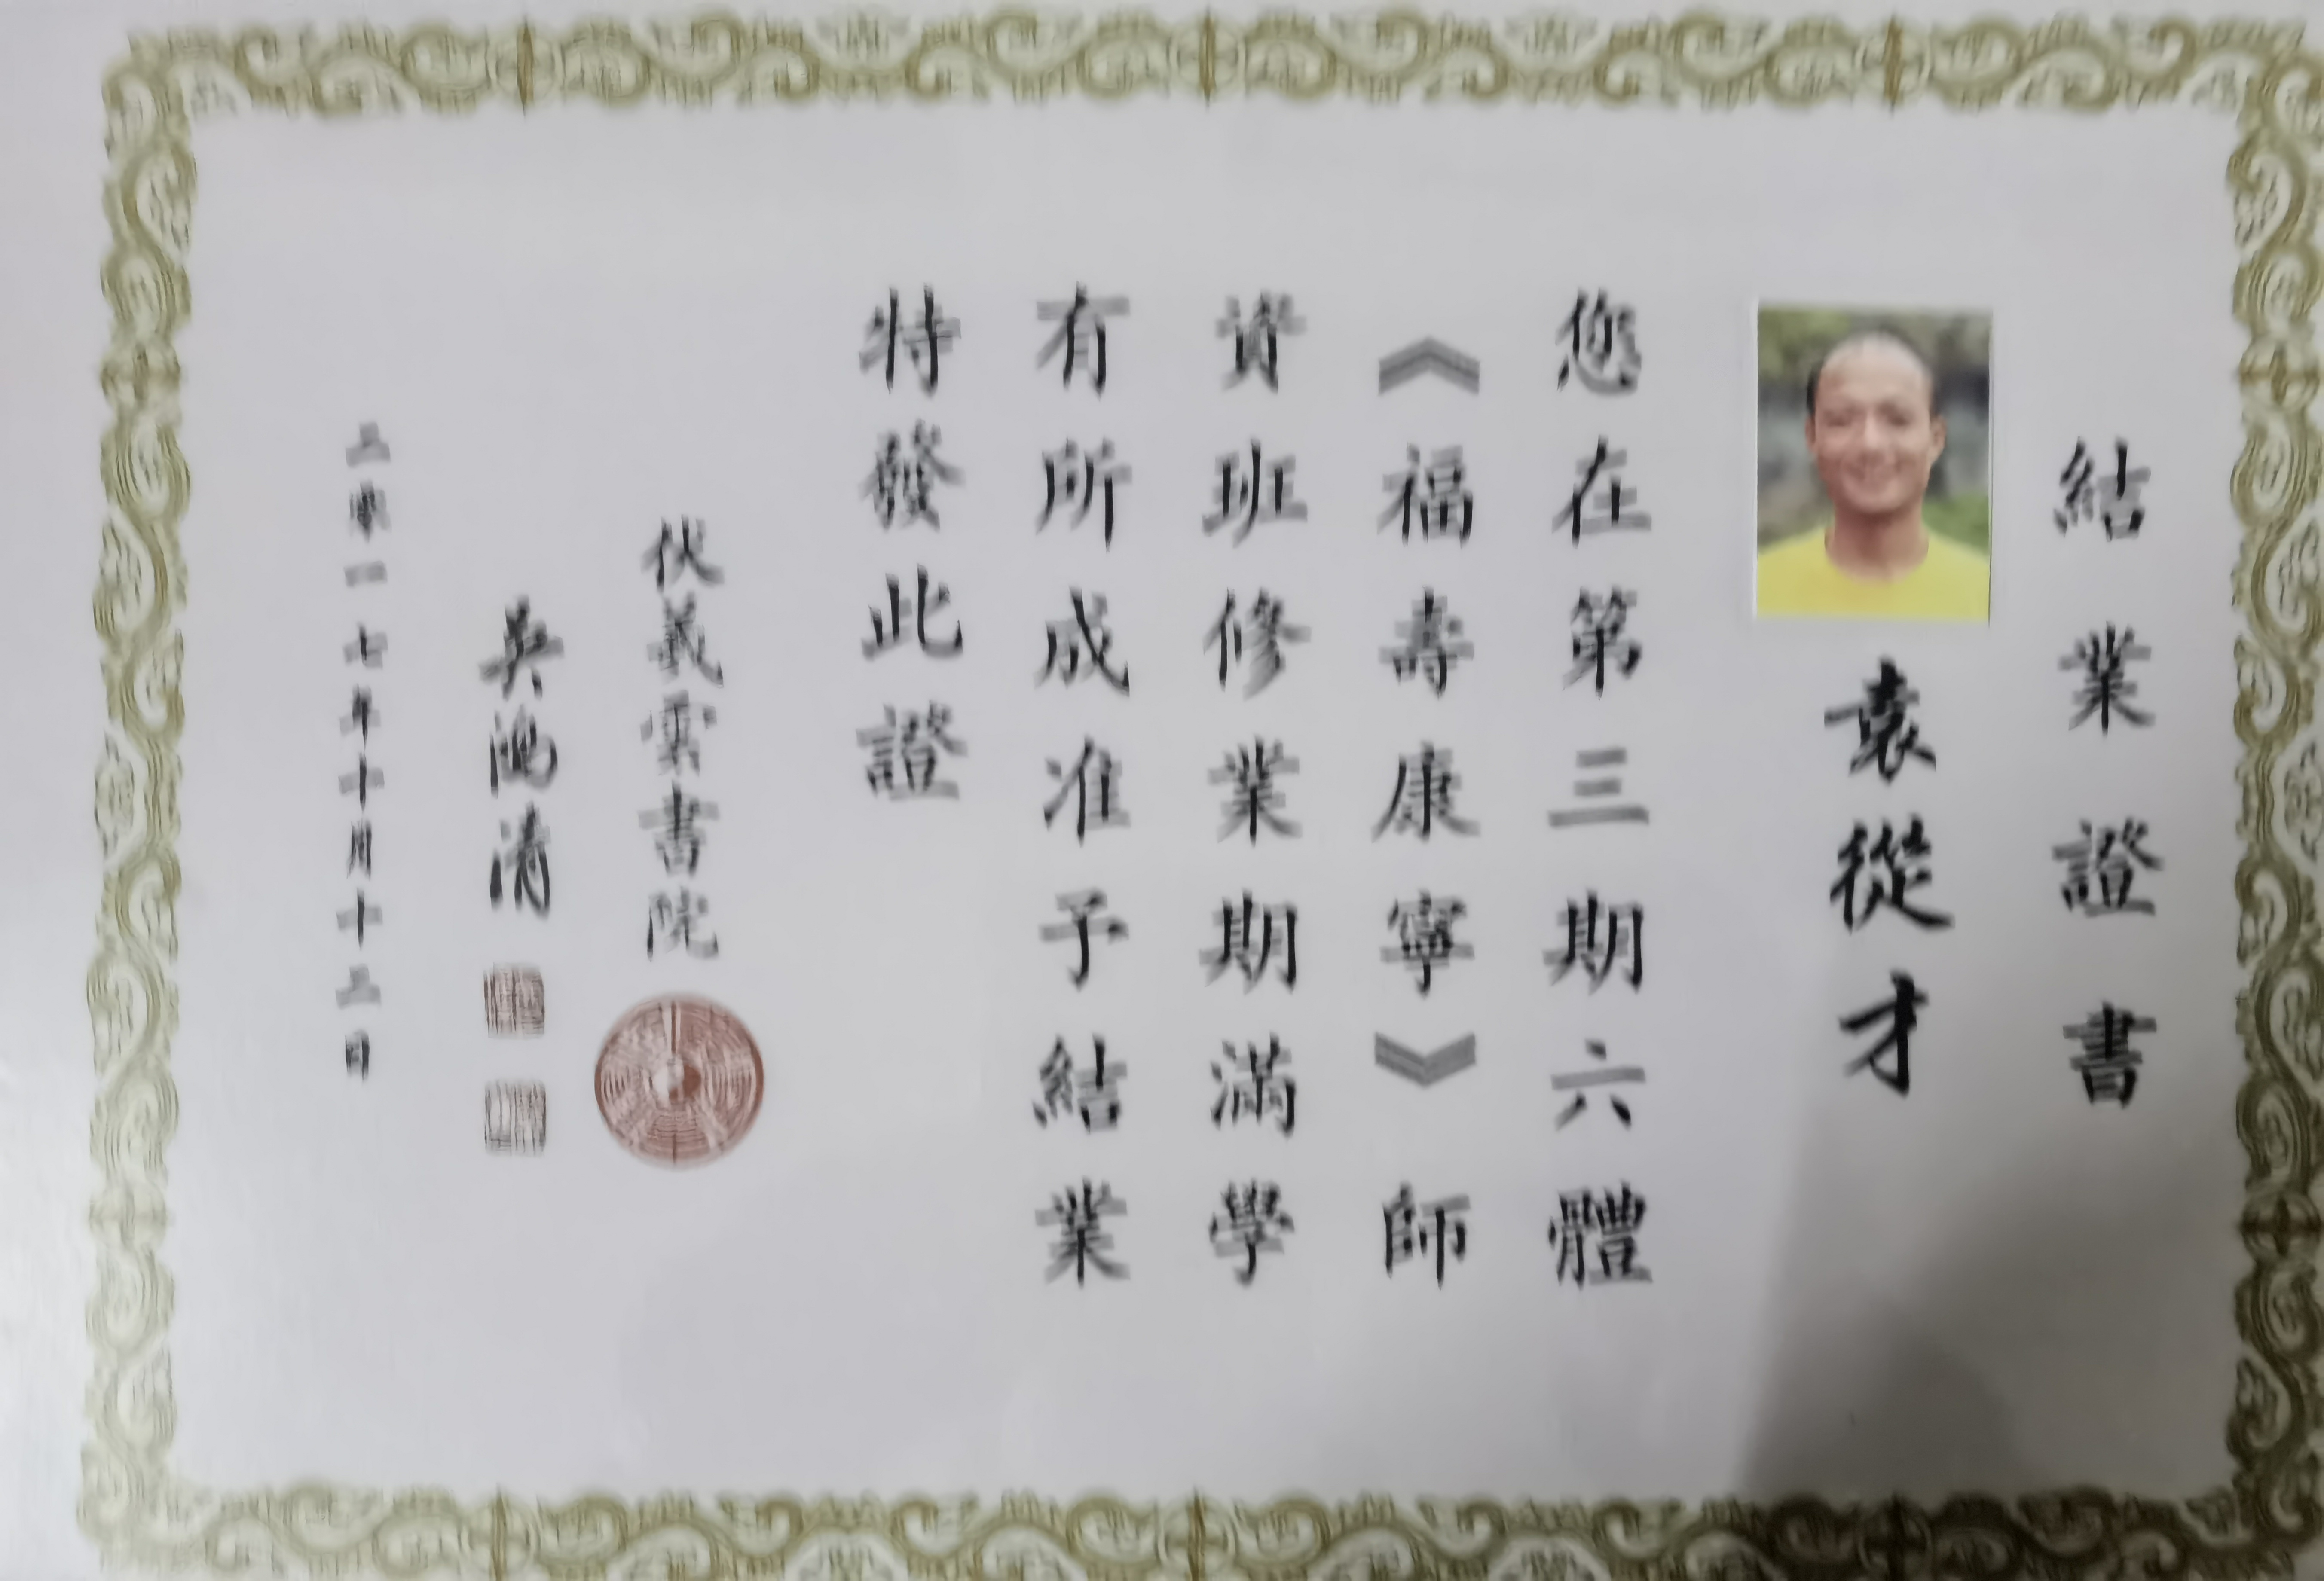 結業證書
袁從才
您在第三期六體
《福壽康寧》師
資班修業期滿學
有所成准予結業
特發此證
伏羲雲書院
吳鴻清
二零一七年十月十三日